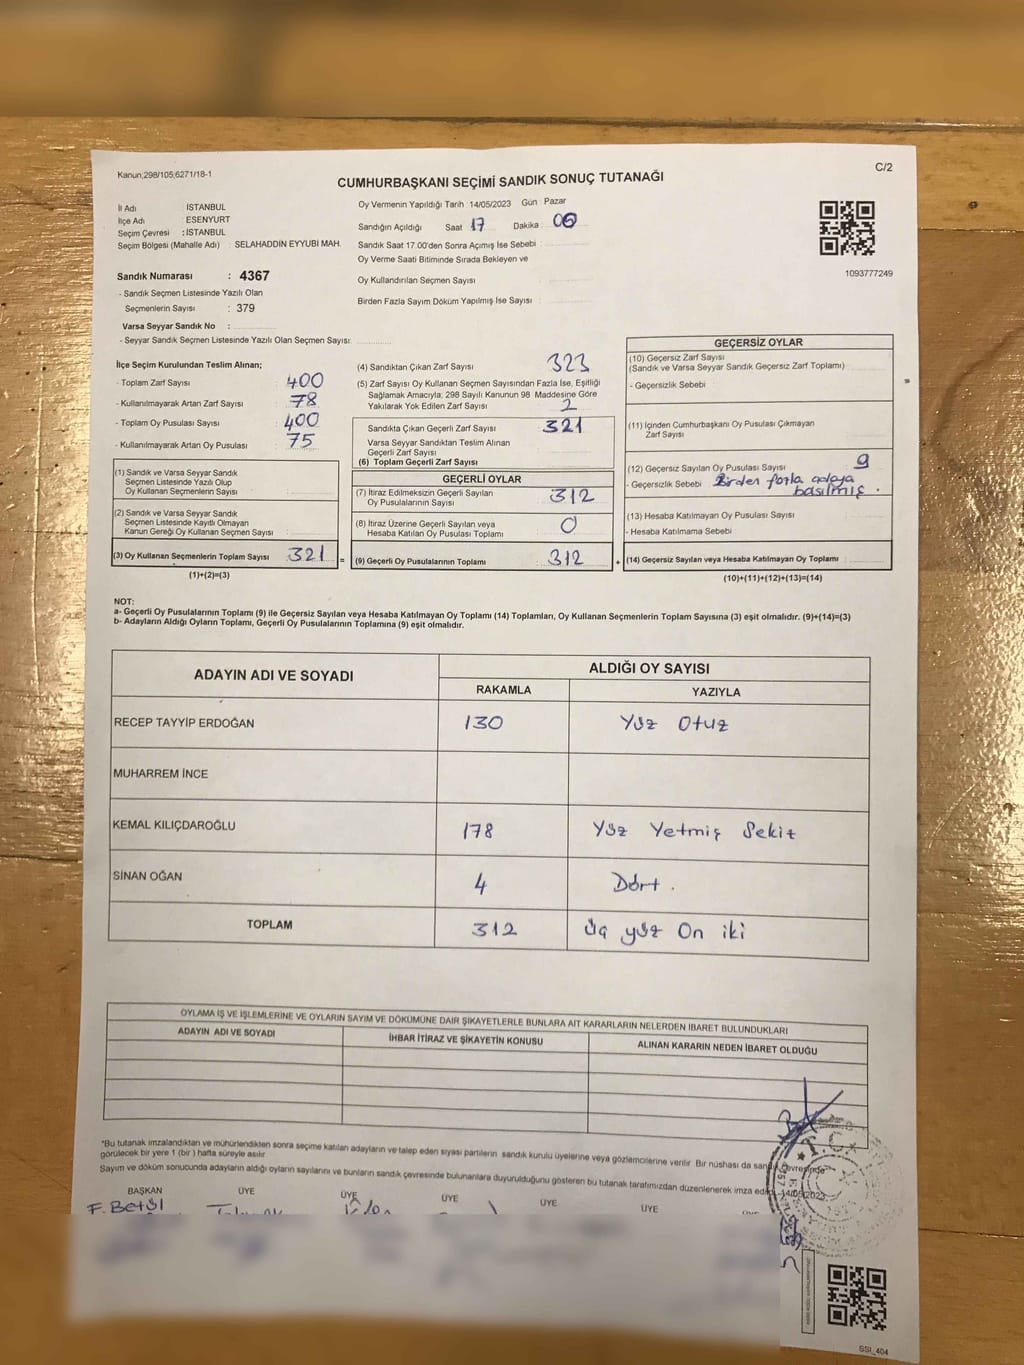 Kanun;298/105;6271/18-1
C/2
CUMHURBAŞKANI SEÇİMİ SANDIK SONUÇ TUTANAĞI
İl Adı : İSTANBUL
İlçe Adı : ESENYURT
Seçim Çevresi : İSTANBUL
Seçim Bölgesi (Mahalle Adı) : SELAHADDİN EYYUBİ MAH.
Sandık Numarası : 4367
- Sandık Seçmen Listesinde Yazılı Olan
Seçmenlerin Sayısı : 379
Varsa Seyyar Sandık No :
- Seyyar Sandık Seçmen Listesinde Yazılı Olan Seçmen Sayısı:
Oy Vermenin Yapıldığı Tarih 14/05/2023 Gün Pazar
Sandığın Açıldığı Saat 17 Dakika 06
Sandık Saat 17.00'den Sonra Açımış İse Sebebi :
Oy Verme Saati Bitiminde Sırada Bekleyen ve
Oy Kullandırılan Seçmen Sayısı :
Birden Fazla Sayım Döküm Yapılmış İse Sayısı :
1093777249
İlçe Seçim Kurulundan Teslim Alınan;
- Toplam Zarf Sayısı : 400
- Kullanılmayarak Artan Zarf Sayısı : 78
- Toplam Oy Pusulası Sayısı : 400
- Kullanılmayarak Artan Oy Pusulası : 75
(1) Sandık ve Varsa Seyyar Sandık
Seçmen Listesinde Yazılı Olup
Oy Kullanan Seçmenlerin Sayısı :
(2) Sandık ve Varsa Seyyar Sandık
Seçmen Listesinde Kayıtlı Olmayan
Kanun Gereği Oy Kullanan Seçmen Sayısı :
(3) Oy Kullanan Seçmenlerin Toplam Sayısı : 321 =
(1)+(2)=(3)
(4) Sandıktan Çıkan Zarf Sayısı : 323
(5) Zarf Sayısı Oy Kullanan Seçmen Sayısından Fazla İse, Eşitliği
Sağlamak Amacıyla; 298 Sayılı Kanunun 98 Maddesine Göre
Yakılarak Yok Edilen Zarf Sayısı : 2
Sandıkta Çıkan Geçerli Zarf Sayısı : 321
Varsa Seyyar Sandıktan Teslim Alınan
Geçerli Zarf Sayısı :
(6) Toplam Geçerli Zarf Sayısı :
GEÇERLİ OYLAR
(7) İtiraz Edilmeksizin Geçerli Sayılan
Oy Pusulalarının Sayısı : 312
(8) İtiraz Üzerine Geçerli Sayılan veya
Hesaba Katılan Oy Pusulası Toplamı : 0
(9) Geçerli Oy Pusulalarının Toplamı : 312 +
GEÇERSİZ OYLAR
(10) Geçersiz Zarf Sayısı
(Sandık ve Varsa Seyyar Sandık Geçersiz Zarf Toplamı) :
- Geçersizlik Sebebi
(11) İçinden Cumhurbaşkanı Oy Pusulası Çıkmayan
Zarf Sayısı :
(12) Geçersiz Sayılan Oy Pusulası Sayısı : 9
- Geçersizlik Sebebi Birden fazla adaya
basılmış .
(13) Hesaba Katılmayan Oy Pusulası Sayısı :
- Hesaba Katılmama Sebebi
(14) Geçersiz Sayılan veya Hesaba Katılmayan Oy Toplamı :
(10)+(11)+(12)+(13)=(14)
NOT:
a- Geçerli Oy Pusulalarının Toplamı (9) ile Geçersiz Sayılan veya Hesaba Katılmayan Oy Toplamı (14) Toplamları, Oy Kullanan Seçmenlerin Toplam Sayısına (3) eşit olmalıdır. (9)+(14)=(3)
b- Adayların Aldığı Oyların Toplamı, Geçerli Oy Pusulalarının Toplamına (9) eşit olmalıdır.
ADAYIN ADI VE SOYADI ALDIĞI OY SAYISI
RAKAMLA YAZIYLA
RECEP TAYYİP ERDOĞAN 130 Yüz Otuz
MUHARREM İNCE
KEMAL KILIÇDAROĞLU 178 Yüz Yetmiş Sekiz
SİNAN OĞAN 4 Dört .
TOPLAM 312 Üç yüz On iki
OYLAMA İŞ VE İŞLEMLERİNE VE OYLARIN SAYIM VE DÖKÜMÜNE DAİR ŞİKAYETLERLE BUNLARA AİT KARARLARIN NELERDEN İBARET BULUNDUKLARI
ADAYIN ADI VE SOYADI İHBAR İTİRAZ VE ŞİKAYETİN KONUSU ALINAN KARARIN NEDEN İBARET OLDUĞU
*Bu tutanak imzalandıktan ve mühürlendikten sonra seçime katılan adayların ve talep eden siyasi partilerin sandık kurulu üyelerine veya gözlemcilerine verilir. Bir nüshası da sandık çevresinde
görülecek bir yere 1 (bir) hafta süreyle asılır.
Sayım ve döküm sonucunda adayların aldığı oyların sayılarını ve bunların sandık çevresinde bulunanlara duyurulduğunu gösteren bu tutanak tarafımızdan düzenlenerek imza edildi. 14/05/2023
BAŞKAN ÜYE ÜYE ÜYE ÜYE ÜYE
F. Betül
T.C.
SSI_404